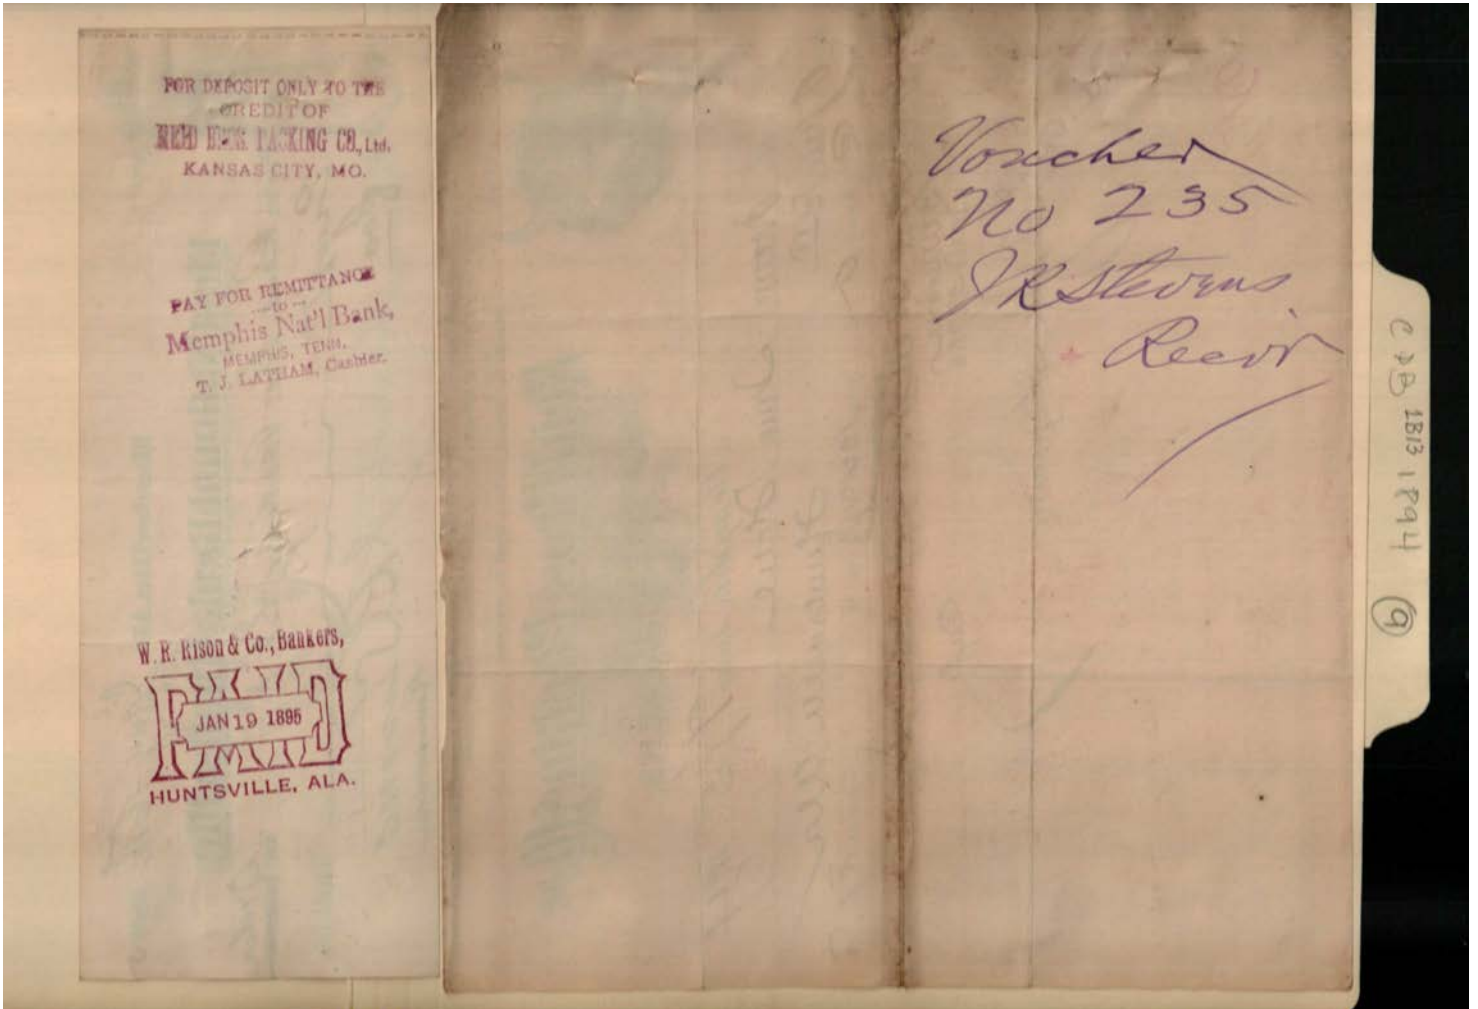 FOR DEPOSIT ONLY TO THE
CREDIT OF
REID BROS. PACKING CO., Ltd.
KANSAS CITY, MO.
PAY FOR REMITTANCE
— to —
Memphis Nat'l Bank,
MEMPHIS, TENN.
T. J. LATHAM, Cashier.
W. R. Rison & Co., Bankers,
PAID
JAN 19 1895
HUNTSVILLE, ALA.
Voucher
No 235
JR Stevens
Recvr
CDB 1B13 1894 9